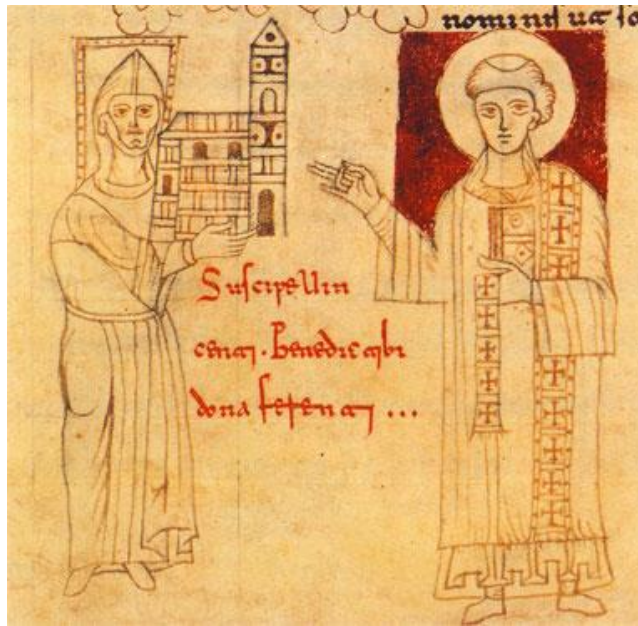 nominis
Suscipe Uin
centi · Benedic tibi
dona ferenti ...